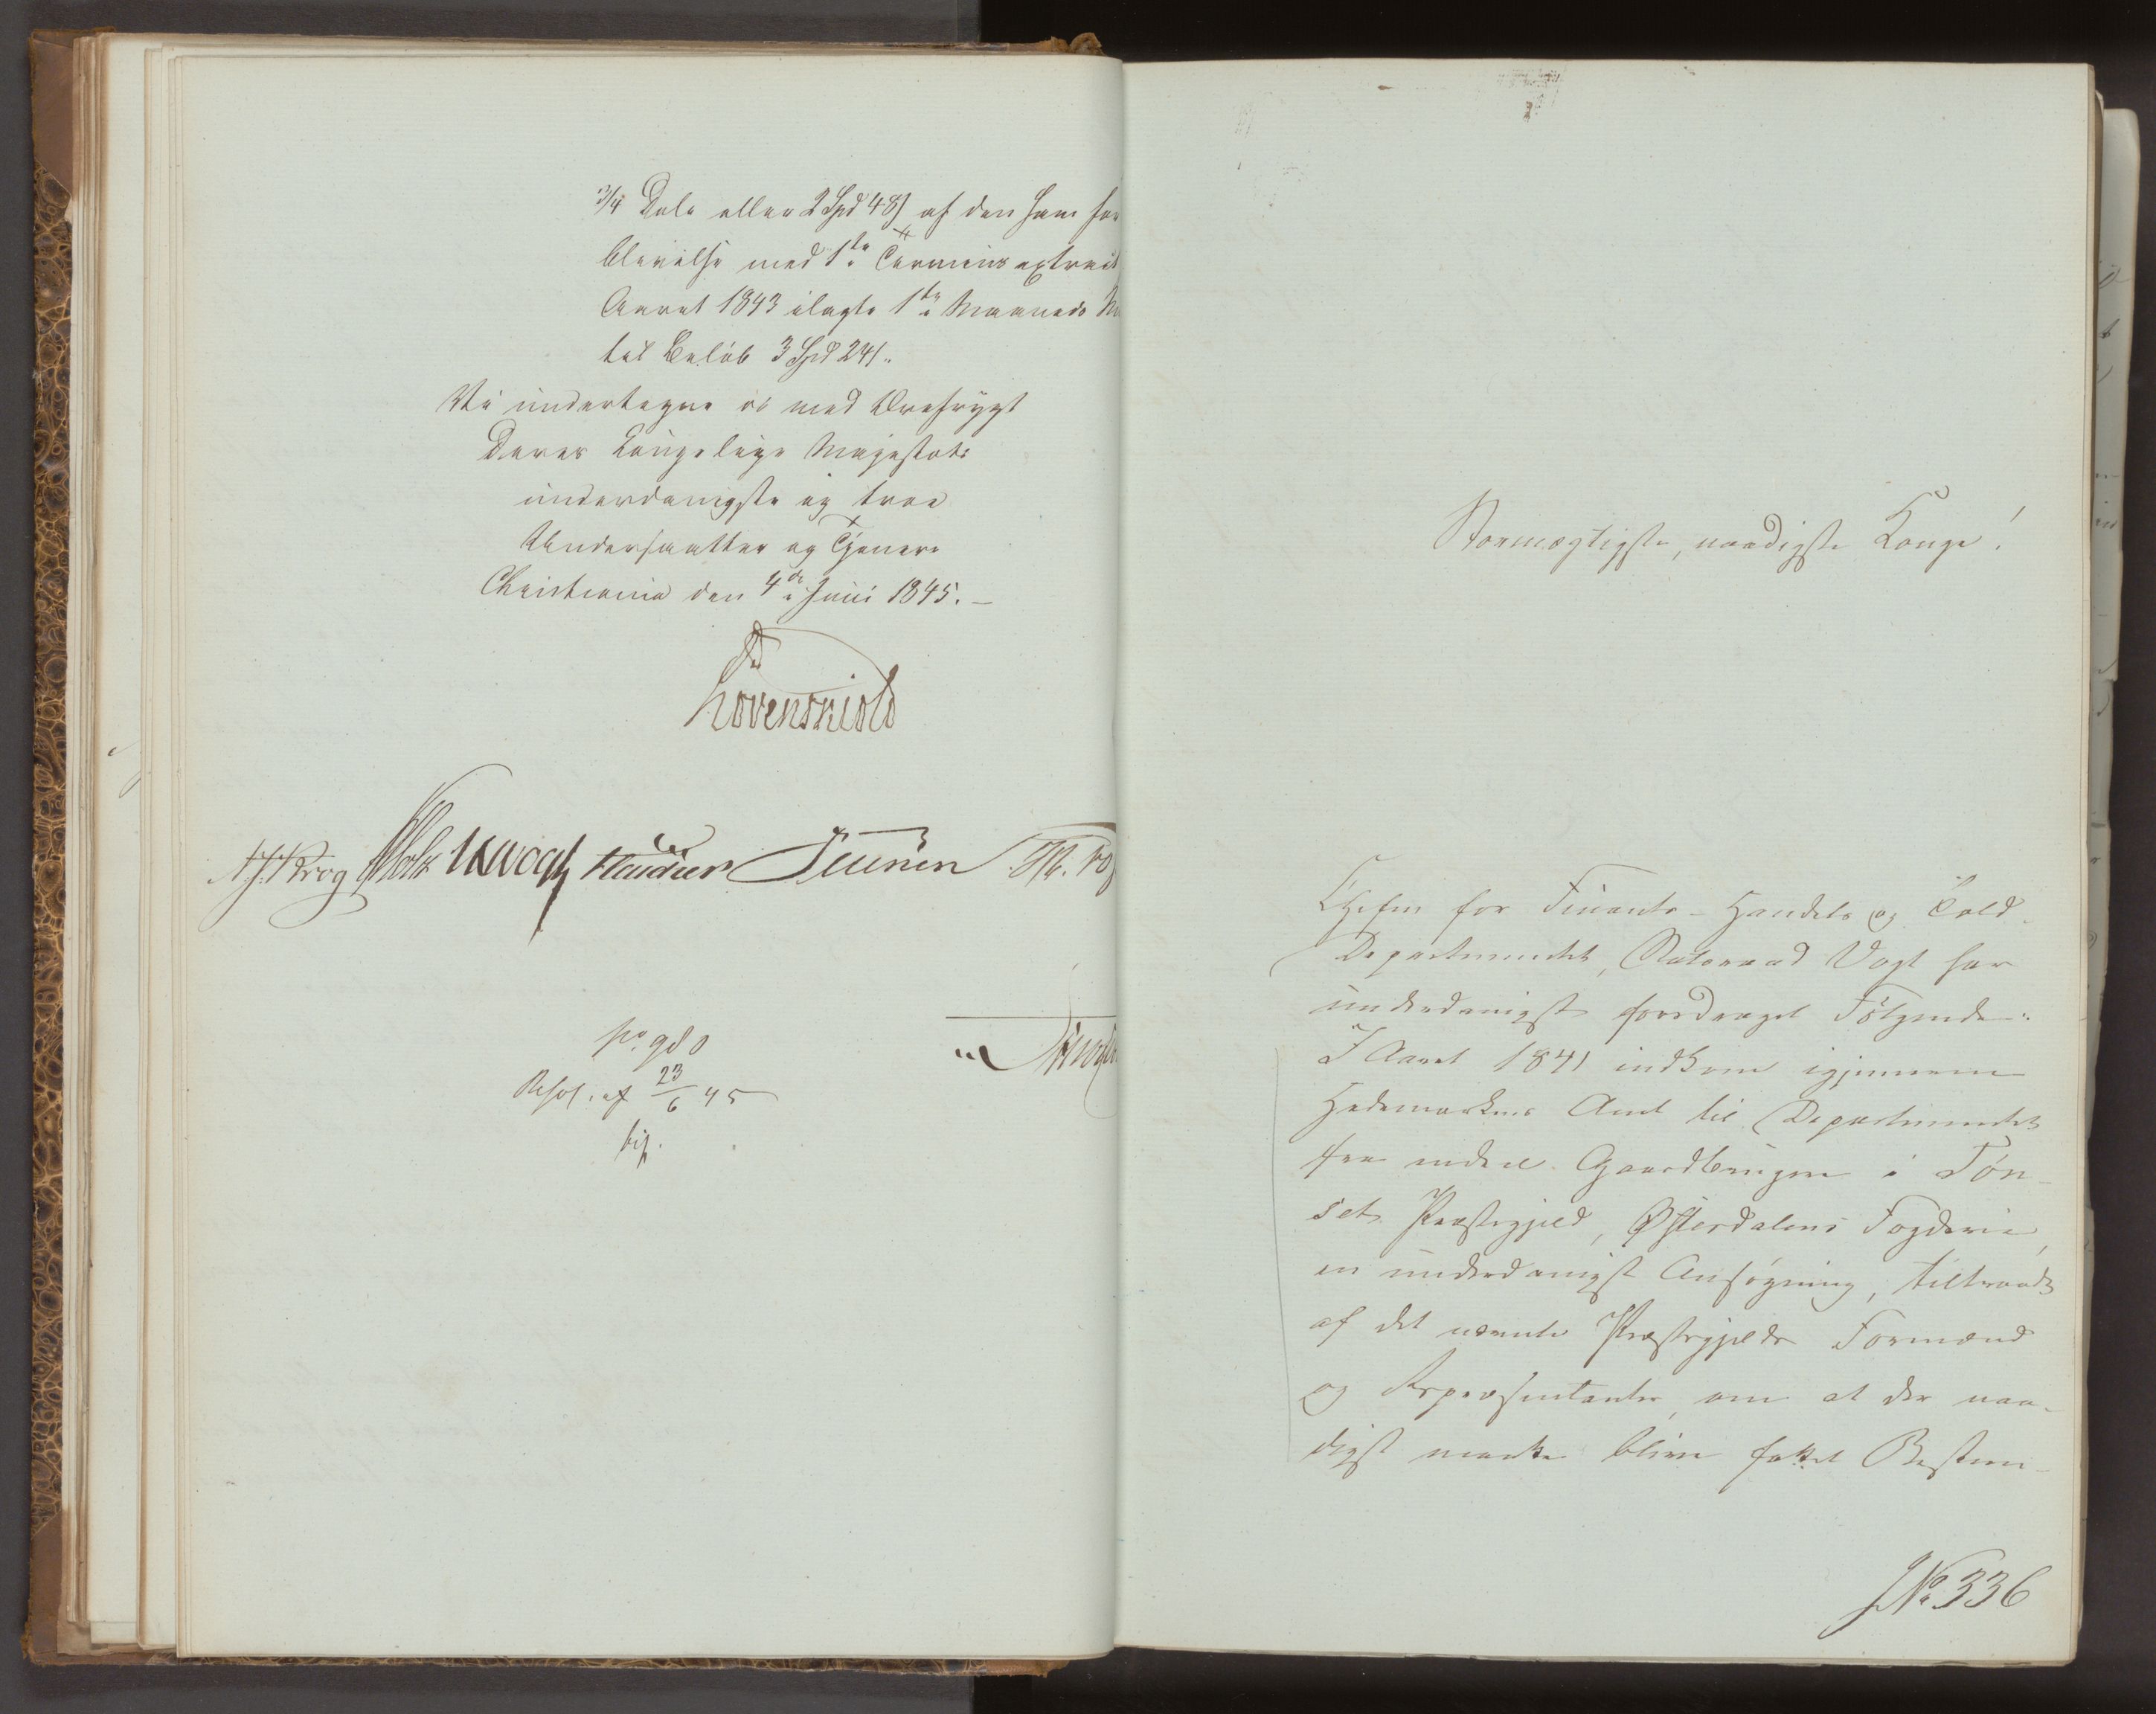 3/4 Dele eller 2 Spd 48 ß af den ham for
blivelse med 1ste Termins extract
Aaret 1843 ilagte 1ste Maaneds
tal Beløb 3 Spd 24 ß.
Vi undertegne os med Ærefrygt
Deres Kongelige Majestæts
underdanigste og troe
Undersaatter og Tjenere
Christiania den 4de Juni 1845.
Løvenskiold
N. J. Krog Holst JHVogt Hauner Petersen
Resol. af 23/6 45
Stormægtigste, naadigste Konge!
Chefen for Finants- Handels og Told-
Departementet, Statsraad Vogt har
underdanigst foredraget Følgende:
I Aaret 1841 indkom igjennem
Hedemarkens Amt til Departementet
fra endeel Gaardbrugere i Tøn-
set Præstegjeld, Østerdalens Fogderie,
en underdanigst Ansøgning, tiltraadt
af det nævnte Præstegjelds Formænd
og Repræsentanter, om at der naa-
digst maatte blive fattet Bestem-
No 336